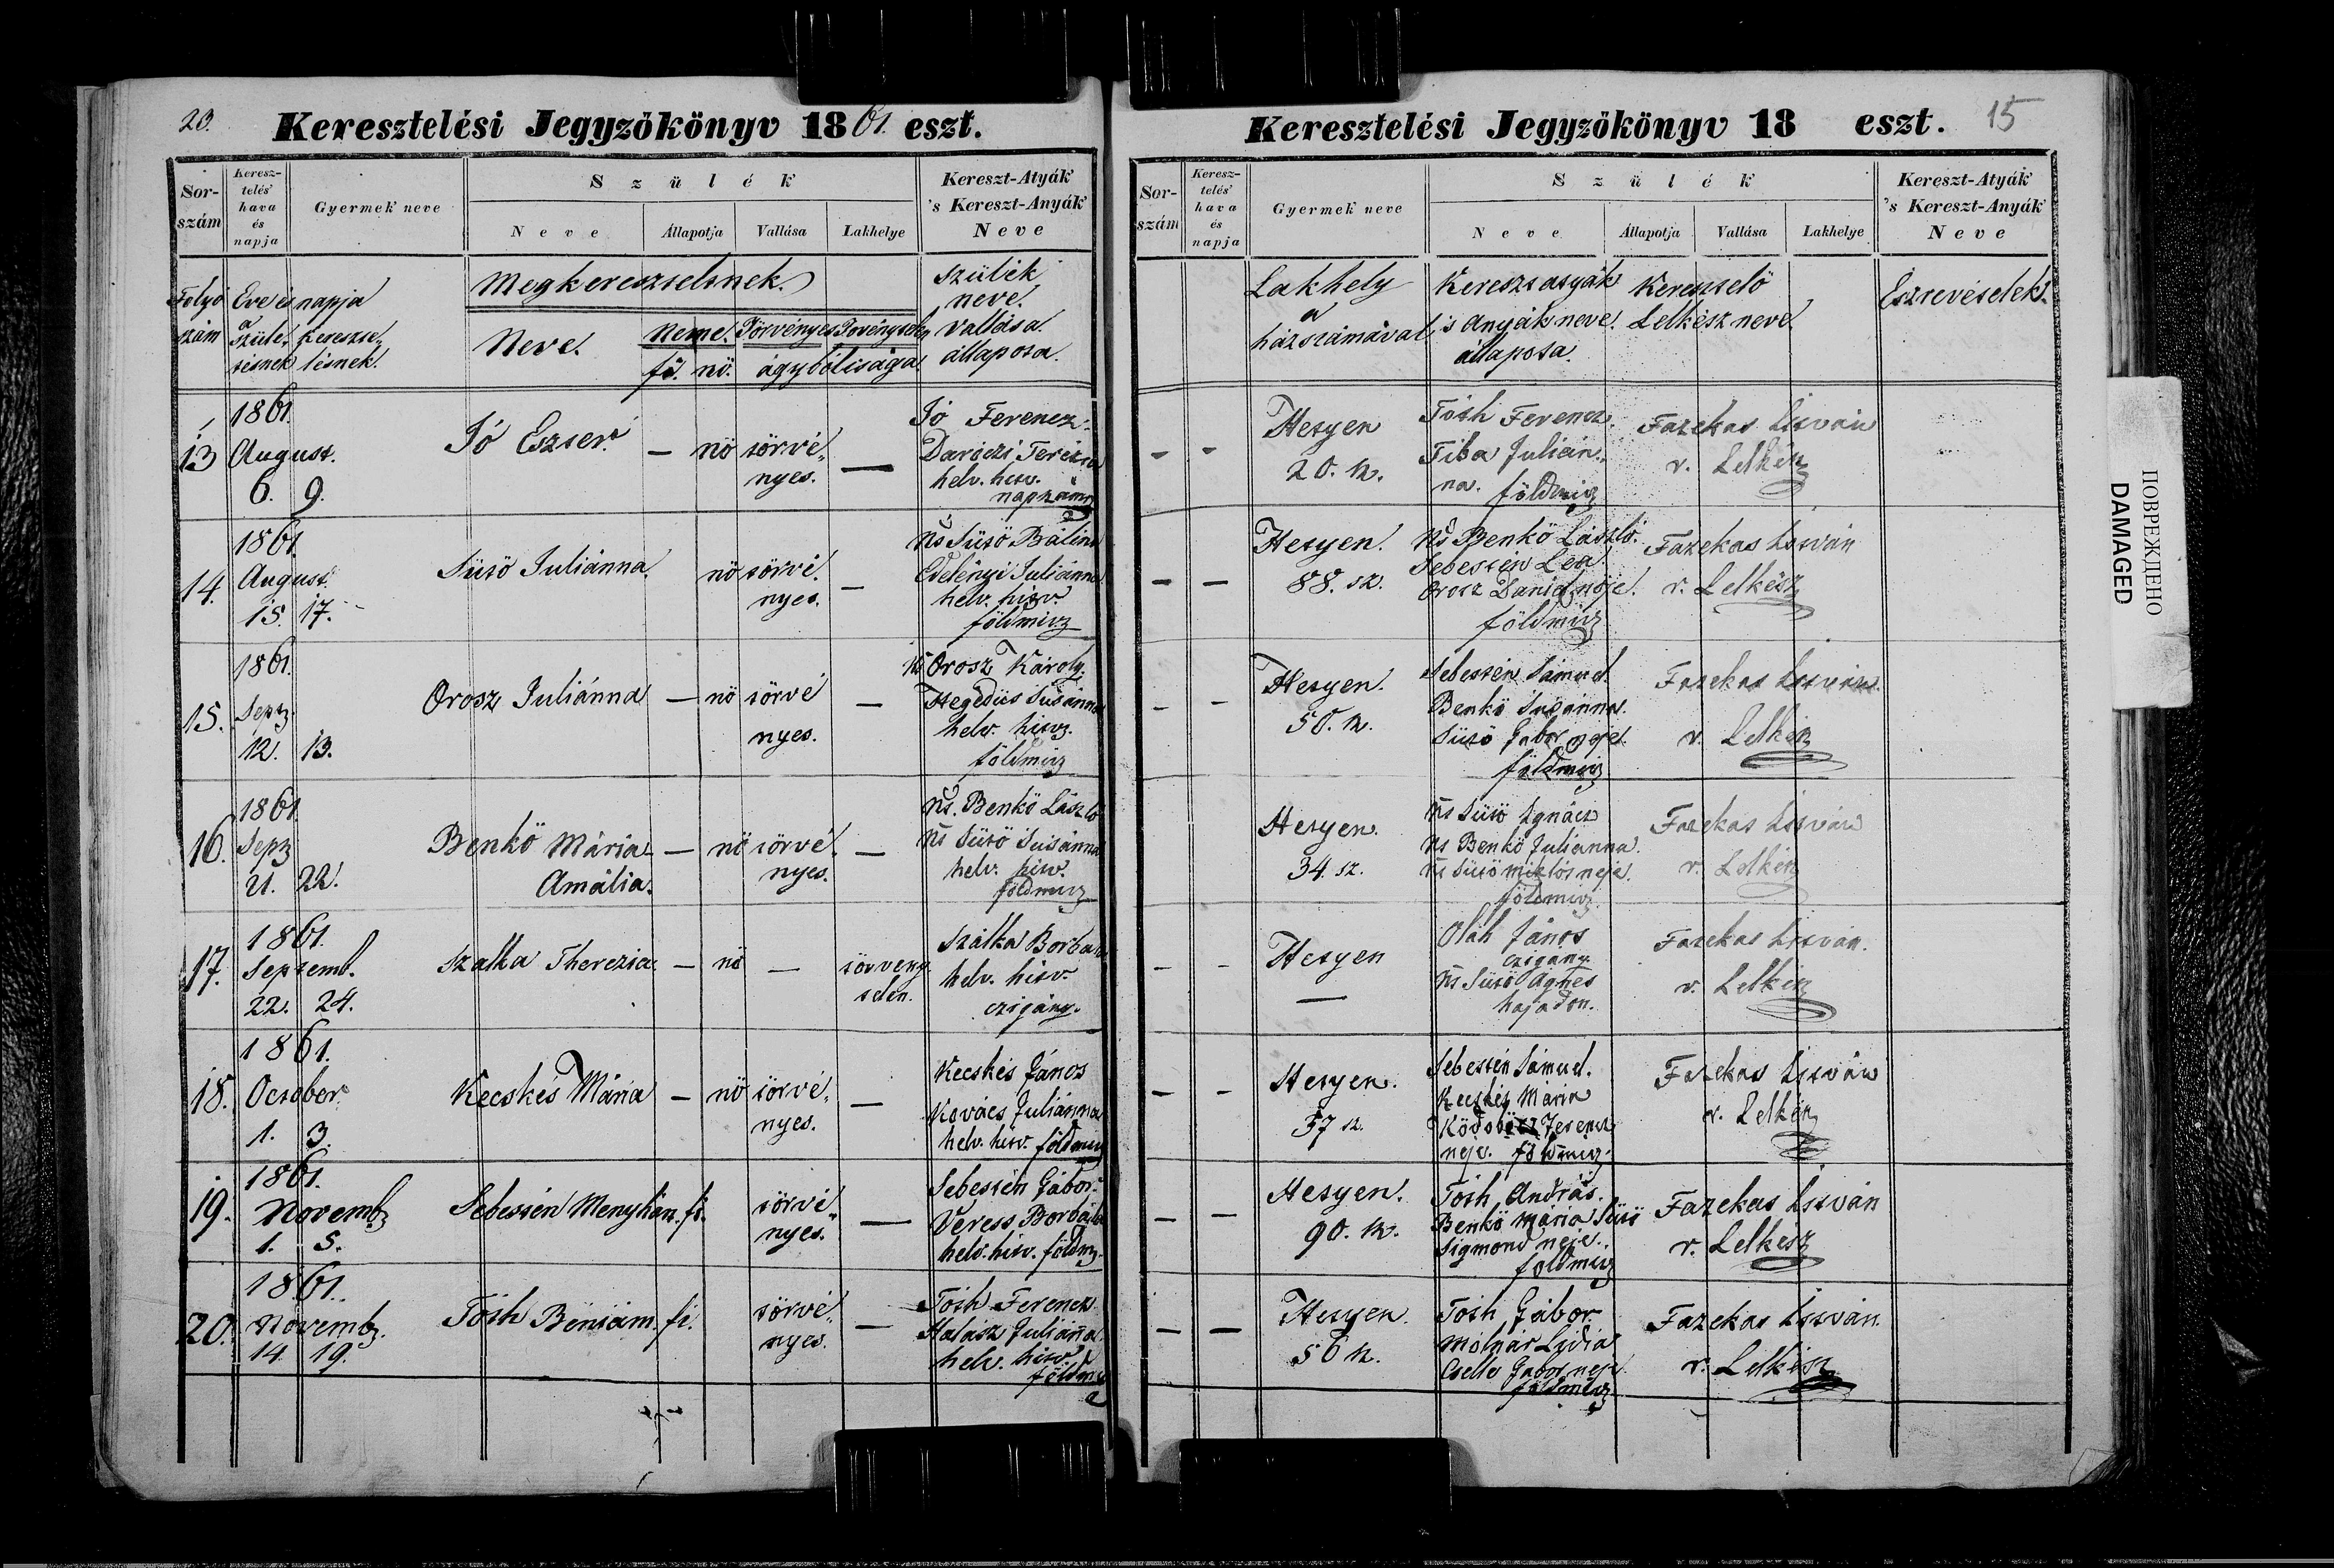 20.
Keresztelési Jegyzőkönyv 1861. eszt.
Sor-
szám
Keresz-
telés'
hava
és
napja
Gyermek neve
Szülék
Neve
Állapotja
Vallása
Lakhelye
Kereszt-Atyák
's Kereszt-Anyák
Neve
Folyó
szám
Eve és napja
a
szüle- kereszte-
tésnek tésnek.
Megkereszteltnek
Neve.
Neme.
fi. nő.
Törvényes Törvénytelen
ágybóli sága
Szülék
neve.
vallása.
állapota.
13
1861.
August.
6. 9.
Jó Eszter
— nő törvé-
nyes.
—
Jó Ferencz.
Daróczi Terézia
helv. hitv.
napszámos
14.
1861.
August.
15. 17.
Sütő Juliánna.
nő törvé-
nyes.
—
Ns Sütő Bálint
Edelényi Juliánna
helv. hitv.
földmivz
15.
1861.
Sept.
12. 13.
Orosz Juliánna
— nő törvé
nyes.
—
Ns Orosz Károly.
Hegedüs Susánna
helv. hitv.
földmivz
16.
1861.
Sept
21. 22.
Benkő Mária
Amália.
— nő törvé-
nyes.
—
Ns. Benkő László
Ns Sütő Susánna
helv. hitv.
földmivz
17.
1861.
Septemb.
22. 24.
Szalka Therezia.
— nő
—
törvény
telen.
Szálka Borbála
helv. hitv.
czigány.
18.
1861.
October.
1. 3.
Kecskés Mária
— nő törvé-
nyes.
—
Kecskés János
Kovács Juliánna
helv. hitv. földmivz
19.
1861.
Novemb.
1. 5.
Sebestén Menyhárt. fi.
törvé-
nyes.
—
Sebestén Gábor.
Veress Borbála
helv. hitv. földmz.
20.
1861.
Novemb.
14. 19.
Tóth Béniám. fi.
törvé-
nyes.
—
Tóth Ferencz
Halász Juliánna
helv. hitv.
földmz
Keresztelési Jegyzőkönyv 18 eszt.
15
Sor-
szám
Keresz-
telés'
hava
és
napja
Gyermek neve
Szülék
Neve
Állapotja
Vallása
Lakhelye
Kereszt-Atyák
's Kereszt-Anyák
Neve
Lakhely
a
házszámával
Keresztatyák
's Anyák neve.
állapota.
Keresztelő
Lelkész neve.
Eszrevételek.
- -
Hetyen
20. sz.
Tóth Ferencz.
Tiba Julián-
na. földmivz
Fazekas István
r. Lelkész
— —
Hetyen.
88. sz.
Ns Benkő László.
Sebestén Lea
Orosz Daniel neje.
földmivz
Fazekas István
r. Lelkész
- -
Hetyen.
50. sz.
Sebestén Sámuel
Benkő Susánna.
Sütő Gabor neje.
földmivz
Fazekas István.
r. Lelkész
Hetyen.
34. sz.
Ns Sütő Ignácz
Ns Benkő Julianna.
Ns Sütő Miklós neje.
földmivz.
Fazekas István
r. Lelkész
- -
Hetyen
—
Oláh János
czigány.
Ns Sütő Ágnes
hajadon.
Fazekas István.
r. Lelkész
- -
Hetyen.
37 sz.
Sebestén Sámuel.
Kecskés Mária
Ferencz
neje. földmivz.
Fazekas István
r. Lelkész
— —
Hetyen.
90. sz.
Tóth András.
Benkő Mária Sütő
Sigmond neje.
földmivz
Fazekas István
r. Lelkész
— —
Hetyen.
56 sz.
Tóth Gábor.
Molnár Lidia
Gabor neje.
földmivz.
Fazekas István.
r. Lelkész
ПОВРЕЖДЕНО
DAMAGED